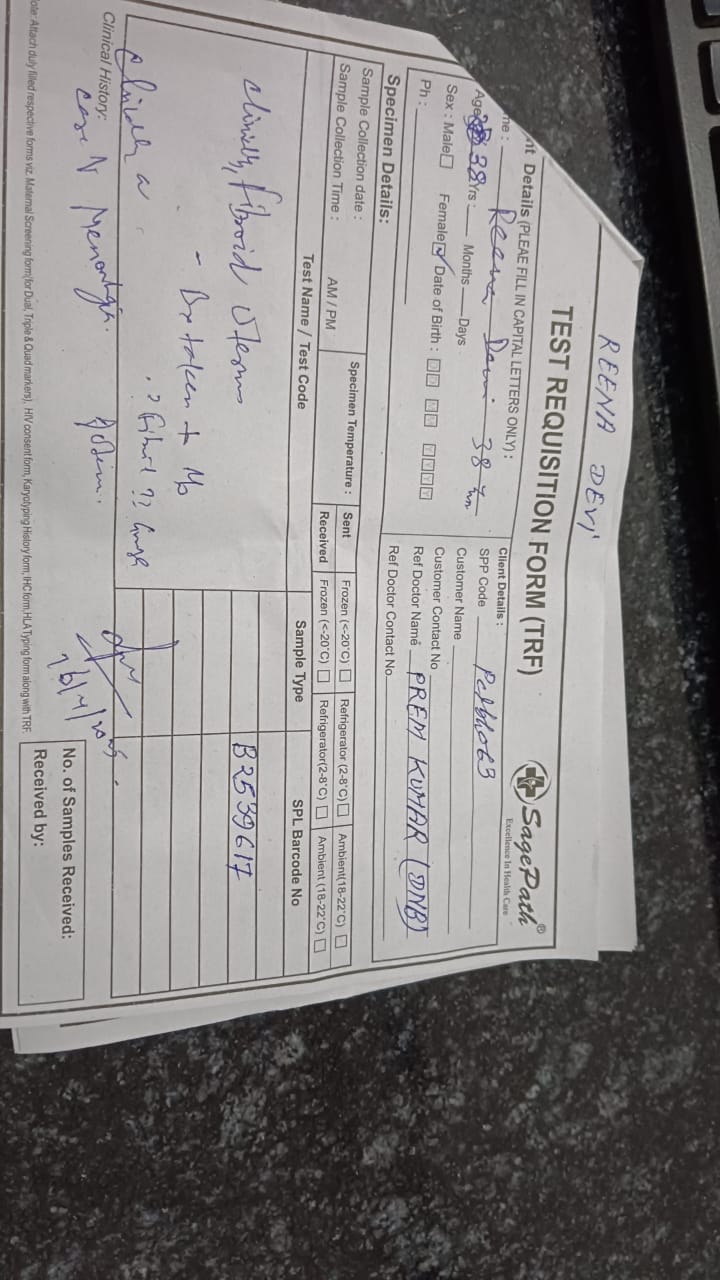 REENA DEVI
TEST REQUISITION FORM (TRF)
SagePath®
Excellence In Health Care
nt Details (PLEAE FILL IN CAPITAL LETTERS ONLY) :
me : Reena Devi 38 yrs
Age 38 Yrs : Months Days
Sex : Male Female Date of Birth : D D M M Y Y Y Y
Ph :
Client Details :
SPP Code
Customer Name
Customer Contact No
Ref Doctor Name PREM KUMAR (DNB)
Ref Doctor Contact No
Specimen Details:
Sample Collection date :
Sample Collection Time : AM / PM
Specimen Temperature : Sent Frozen (<-20°C) Refrigerator (2-8°C) Ambient(18-22°C)
Received Frozen (<-20°C) Refrigerator(2-8°C) Ambient (18-22°C)
Test Name / Test Code Sample Type SPL Barcode No
Clinically, fibroid Uterus
B2539617
Clinical History:
Clinically a
case of Menorrhagia.
No. of Samples Received:
Received by:
ote: Attach duly filled respective forms viz. Maternal Screening form(for Dual, Triple & Quad markers), HIV consent form, Karyotyping History form, IHC form, HLA Typing form along with TRF.